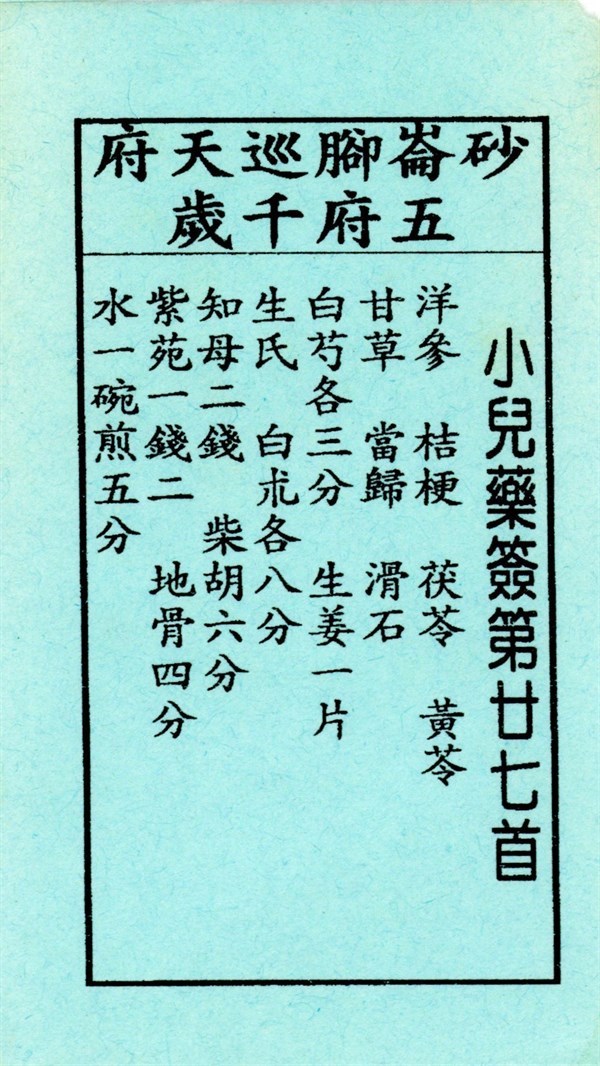 砂崙腳巡天府
五府千歲
小兒藥簽第廿七首
洋參　桔梗　茯苓　黃芩
甘草　當歸　滑石
白芍各三分　生姜一片
生氏　白朮各八分
知母二錢　柴胡六分
紫苑一錢二　地骨四分
水一碗煎五分